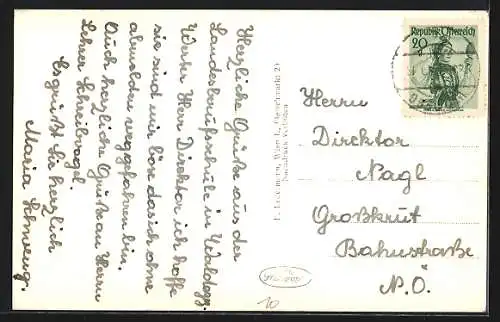 Herzliche Grüße aus der
Landesberufschule in Waldegg.
Werter Herr Direktor ich hoffe
sie sind mir böse das ich ohne
abmelden weggefahren bin.
Auch herzliche Grüße an Herrn
Lehrer Schreibvogel.
Es grüßt Sie herzlich
Maria Schweng.
Nachdruck Verboten
Republik Österreich
20
Herrn
Direktor
Nagl
Großkrut
Bahnstraße
N.Ö.
10